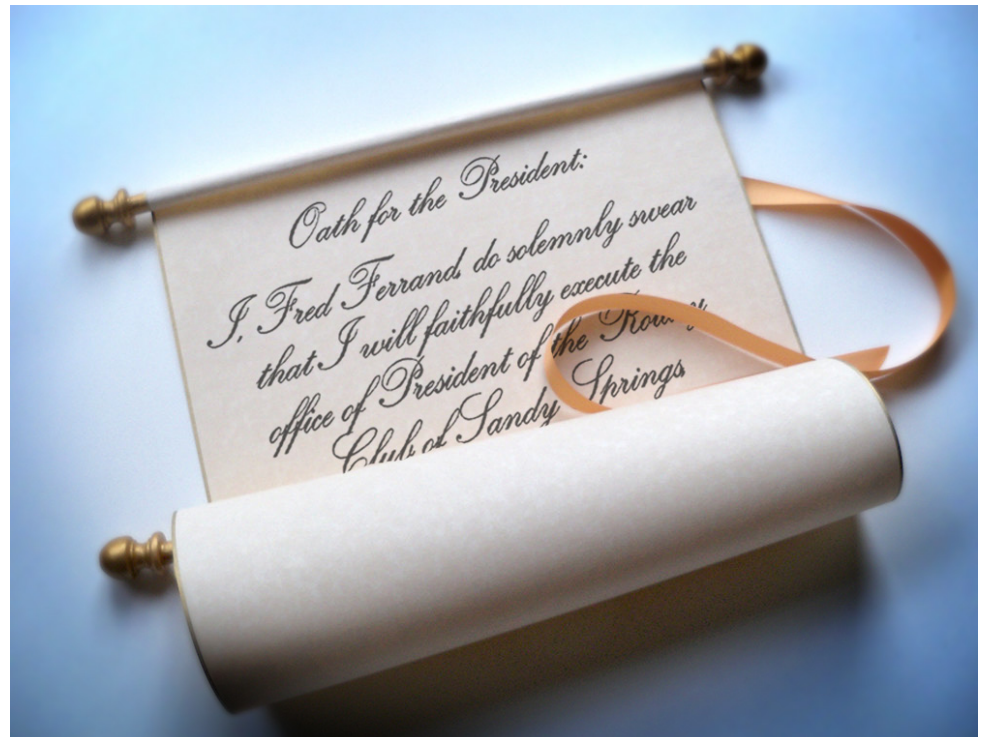 Oath for the President:
I, Fred Ferrand, do solemnly swear
that I will faithfully execute the
office of President of the
Club of Sandy Springs